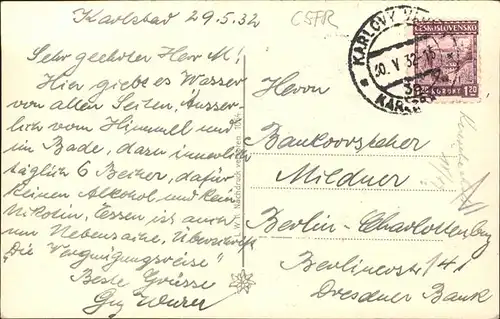 Karlsbad 29.5.32
ČSFR
Sehr geehrter Herr M!
Hier giebt es Wasser
von allen Seiten, Äusser-
lich vom Himmel und
im Bade, dazu innerlich
täglich 6 Becher, dafür
keinen Alkohol und kein
Nikotin, Essen ist auch
nur Nebensache, Überschrift
"Die Vergnügungsreise"
Beste Grüsse
Nachdruck verboten
KARLOVY VARY
30.V.32-15
3a
KARLSBAD
ČESKOSLOVENSKO
1.20 KORUNY 1.20
Herrn
Bankvorsteher
Mildner
Berlin-Charlottenbug
Berlinerstr 141
Dresdner Bank